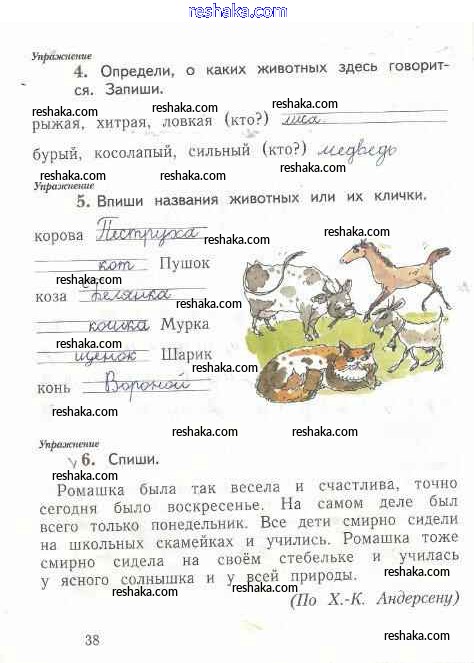 reshaka.com
Упражнение
4. Определи, о каких животных здесь говорит-
reshaka.com reshaka.com
ся. Запиши.
reshaka.com reshaka.com reshaka.com
рыжая, хитрая, ловкая (кто?) лиса
reshaka.com
бурый, косолапый, сильный (кто?) медведь
reshaka.com
Упражнение
reshaka.com
5. Впиши названия животных или их клички.
reshaka.com reshaka.com
корова Пеструха
reshaka.com
кот Пушок
reshaka.com
коза Белянка
reshaka.com
кошка Мурка
reshaka.com
щенок Шарик
reshaka.com
конь Вороной
reshaka.com
reshaka.com
reshaka.com reshaka.com
Упражнение
6. Спиши.
reshaka.com
reshaka.com
Ромашка была так весела и счастлива, точно
сегодня было воскресенье. На самом деле был
reshaka.com
всего только понедельник. Все дети смирно сидели
reshaka.com
на школьных скамейках и учились. Ромашка тоже
reshaka.com
смирно сидела на своём стебельке и училась
reshaka.com
у ясного солнышка и у всей природы.
reshaka.com
reshaka.com
(По Х.-К. Андерсену)
reshaka.com
38
reshaka.com